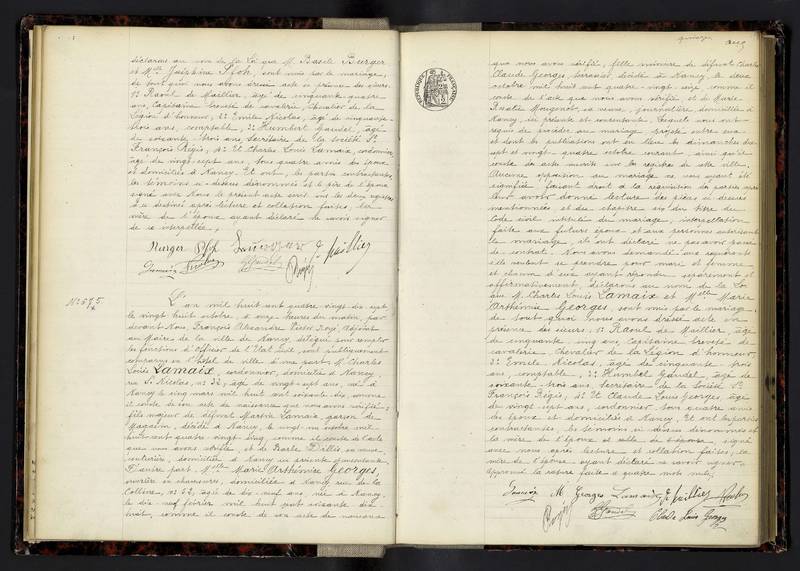 déclarons au nom de la Loi que M. Basile Burger
et Melle Joséphine Pfoh, sont unis par le mariage,
de tout quoi nous avons dressé acte en présence des sieurs:
1° Raoul de Maillier, âgé de cinquante quatre
ans, Capitaine breveté de cavalerie, Chevalier de la
Légion d'honneur, 2° Emile Nicolas, âgé de cinquante
trois ans, comptable, 3° Humbert Gaudel, âgé
de soixante trois ans, Secrétaire de la Société St
François Régis, 4° Et Charles Louis Lamaix, cordonnier
âgé de vingt sept ans, tous quatre amis des époux
et domiciliés à Nancy. Et ont, les parties contractantes,
les témoins ci-dessus dénommés et le père de l'épouse
signé avec Nous le présent acte
après lecture et collation faites, la
mère de l'épouse ayant déclaré ne savoir signer
de ce interpellée.
Burger Pfoh
Gaudel
N° 575
L'an mil huit cent quatre vingt dix sept
le vingt huit octobre, à onze heures du matin, par
devant Nous François Alexandre Victor Noyé, Adjoint
au Maire de la ville de Nancy, délégué pour remplir
les fonctions d'Officier de l'Etat Civil, sont publiquement
comparus en l'hôtel de ville d'une part M. Charles
Louis Lamaix, cordonnier, domicilié à Nancy,
rue St Nicolas, n° 32, âgé de vingt-sept ans, né à
Nancy le cinq mars mil huit cent soixante dix, comme
il conste de son acte de naissance que nous avons vérifié;
fils majeur de défunt Martin Lamaix, garçon de
Magasin, décédé à Nancy, le vingt un octobre mil
huit cent quatre vingt cinq, comme il conste de l'acte
que nous avons vérifié, et de Barbe Dillès sa veuve,
couturière, domiciliée à Nancy ici présente et consentante
D'autre part Melle Marie Arthémise Georges,
ouvrière en chaussures, domiciliée à Nancy rue de la
Colline, n° 52, âgée de dix neuf ans, née à Nancy,
le dix neuf février mil huit cent soixante dix
huit, comme il conste de son acte de naissance
RÉPUBLIQUE FRANÇAISE
que nous avons vérifié, fille mineure de défunt Charles
Claude Georges, décédé à Nancy, le deux
octobre mil huit cent quatre vingt onze, comme il
conste de l'acte que nous avons vérifié et de Marie
Rosalie Mougenot, sa veuve, journalière, domiciliée à
Nancy, ici présente et consentante. Lesquels nous ont
requis de procéder au mariage projeté entre eux
et dont les publications ont eu lieu les dimanches dix
sept et vingt quatre octobre courant, ainsi qu'il
conste des actes inscrits sur les registres de cette ville,
Aucune opposition au mariage ne nous ayant été
signifiée, faisant droit à la réquisition des parties après
leur avoir donné lecture des pièces ci dessus
mentionnées et du chapitre six du titre du
Code civil intitulé du mariage, interpellation
faite aux futurs époux et aux personnes autorisant
le mariage, ils ont déclaré ne pas avoir passé
de contrat. Nous avons demandé aux requérants
s'ils veulent se prendre pour mari et femme
et chacun d'eux ayant répondu séparément et
affirmativement, déclarons au nom de la Loi
que M. Charles Louis Lamaix et Melle Marie
Arthémise Georges, sont unis par le mariage,
de tout quoi nous avons dressé acte en
présence des sieurs, 1° Raoul de Maillier, âgé
de cinquante cinq ans, Capitaine breveté de
cavalerie, Chevalier de la Légion d'honneur,
2° Emile Nicolas, âgé de cinquante trois
ans, comptable, 3° Humbert Gaudel, âgé de
soixante trois ans, Secrétaire de la Société St
François Régis, 4° Et Claude Louis Georges, âgé
de vingt sept ans, cordonnier tous quatre amis
des époux et domiciliés à Nancy. Et ont les parties
contractantes, les témoins ci dessus dénommés et
la mère de l'époux et celle de l'épouse, signé
avec nous après lecture et collation faites, la
mère de l'époux ayant déclaré ne savoir signer
Approuvé la rature faite à quatre mots nuls.
M. Georges Lamaix
Gaudel Claude Louis Georges